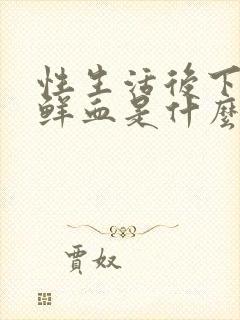 性生活後下
鮮血是什麼
賈奴